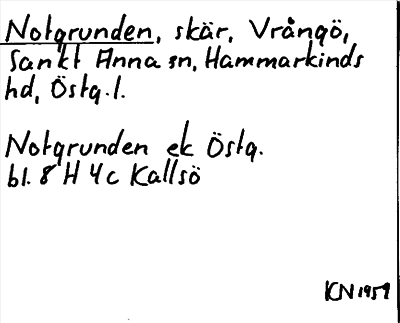 Notgrunden, skär, Vrångö,
Sankt Anna sn, Hammarkinds
hd, Östg. l.
Notgrunden ek Östg.
bl. 8 H 4 c Kallsö
KN 1959